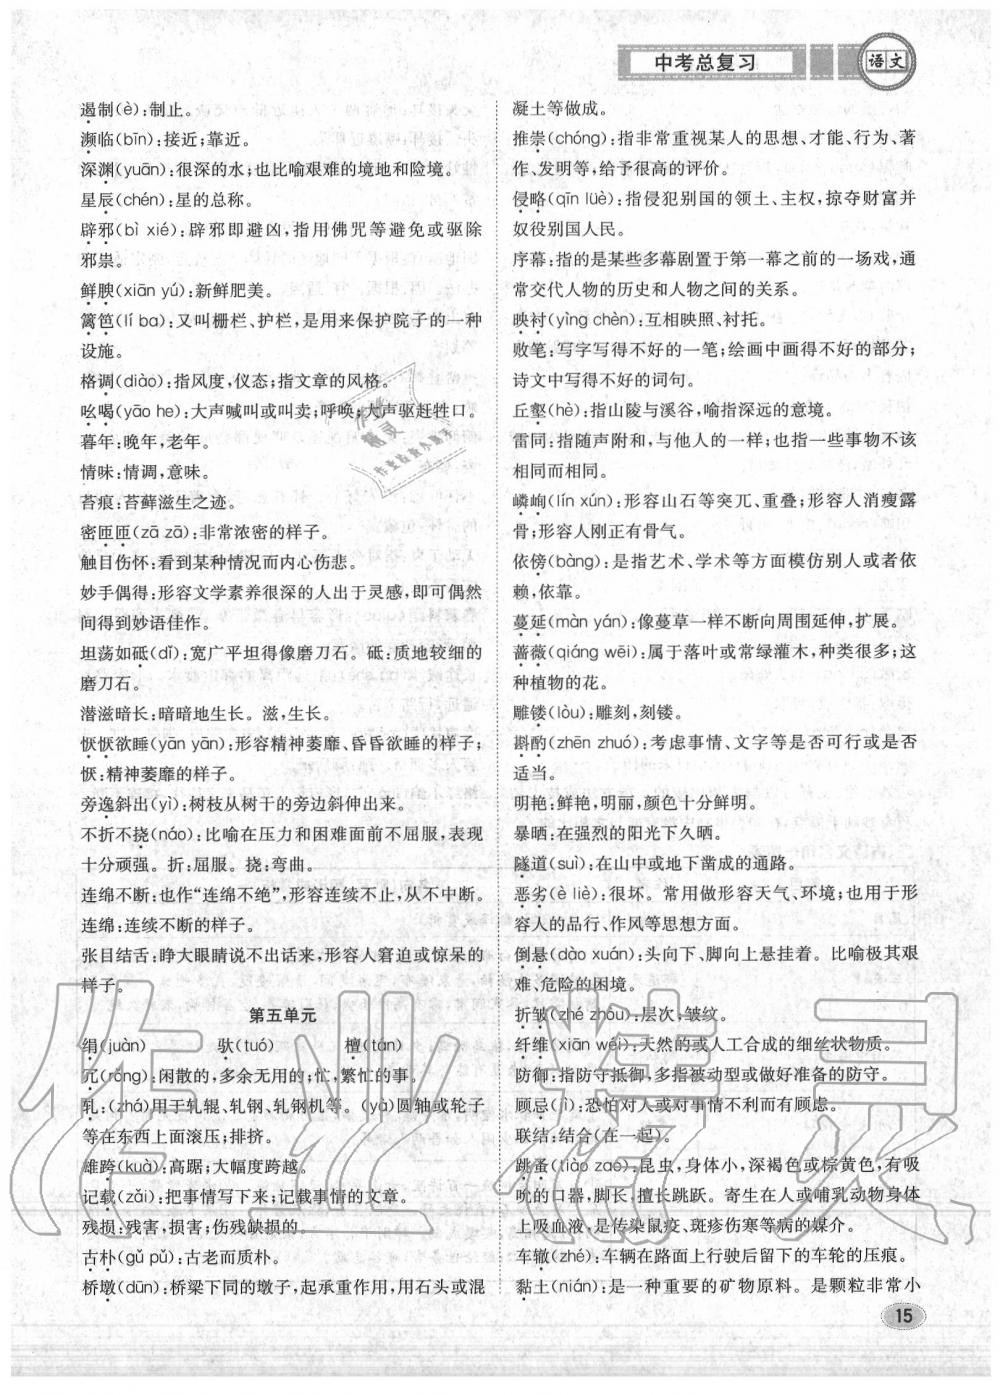 中考总复习
语文
遏制(è):制止。
濒临(bīn):接近;靠近。
深渊(yuān):很深的水;也比喻艰难的境地和险境。
星辰(chén):星的总称。
辟邪(bì xié):辟邪即避凶,指用佛咒等避免或驱除
邪祟。
鲜腴(xiān yú):新鲜肥美。
篱笆(lí ba):又叫栅栏、护栏,是用来保护院子的一种
设施。
格调(diào):指风度,仪态;指文章的风格。
吆喝(yāo he):大声喊叫或叫卖;呼唤;大声驱赶牲口。
暮年:晚年,老年。
情味:情调,意味。
苔痕:苔藓滋生之迹。
密匝匝(zā zā):非常浓密的样子。
触目伤怀:看到某种情况而内心伤悲。
妙手偶得:形容文学素养很深的人出于灵感,即可偶然
间得到妙语佳作。
坦荡如砥(dǐ):宽广平坦得像磨刀石。砥:质地较细的
磨刀石。
潜滋暗长:暗暗地生长。滋,生长。
恹恹欲睡(yān yān):形容精神萎靡、昏昏欲睡的样子;
恹:精神萎靡的样子。
旁逸斜出(yì):树枝从树干的旁边斜伸出来。
不折不挠(náo):比喻在压力和困难面前不屈服,表现
十分顽强。折:屈服。挠:弯曲。
连绵不断:也作“连绵不绝”,形容连续不止,从不中断。
连绵:连续不断的样子。
张目结舌:睁大眼睛说不出话来,形容人窘迫或惊呆的
样子。
第五单元
绢(juàn) 驮(tuó) 檀(tán)
冗(rǒng):闲散的,多余无用的;忙,繁忙的事。
轧:(zhá)用于轧辊、轧钢、轧钢机等。(yà)圆轴或轮子
等在东西上面滚压;排挤。
雄跨(kuà):高踞;大幅度跨越。
记载(zǎi):把事情写下来;记载事情的文章。
残损:残害,损害;伤残缺损的。
古朴(gǔ pǔ):古老而质朴。
桥墩(dūn):桥梁下同的墩子,起承重作用,用石头或混
凝土等做成。
推崇(chóng):指非常重视某人的思想、才能、行为、著
作、发明等,给予很高的评价。
侵略(qīn lüè):指侵犯别国的领土、主权,掠夺财富并
奴役别国人民。
序幕:指的是某些多幕剧置于第一幕之前的一场戏,通
常交代人物的历史和人物之间的关系。
映衬(yìng chèn):互相映照、衬托。
败笔:写字写得不好的一笔;绘画中画得不好的部分;
诗文中写得不好的词句。
丘壑(hè):指山陵与溪谷,喻指深远的意境。
雷同:指随声附和,与他人的一样;也指一些事物不该
相同而相同。
嶙峋(lín xún):形容山石等突兀、重叠;形容人消瘦露
骨;形容人刚正有骨气。
依傍(bàng):是指艺术、学术等方面模仿别人或者依
赖,依靠。
蔓延(màn yán):像蔓草一样不断向周围延伸,扩展。
蔷薇(qiáng wēi):属于落叶或常绿灌木,种类很多;这
种植物的花。
雕镂(lòu):雕刻,刻镂。
斟酌(zhēn zhuó):考虑事情、文字等是否可行或是否
适当。
明艳:鲜艳,明丽,颜色十分鲜明。
暴晒:在强烈的阳光下久晒。
隧道(suì):在山中或地下凿成的通路。
恶劣(è liè):很坏。常用做形容天气、环境;也用于形
容人的品行、作风等思想方面。
倒悬(dào xuán):头向下、脚向上悬挂着。比喻极其艰
难、危险的困境。
折皱(zhé zhòu):层次,皱纹。
纤维(xiān wéi):天然的或人工合成的细丝状物质。
防御:指防守抵御,多指被动型或做好准备的防守。
顾忌(jì):恐怕对人或对事情不利而有顾虑。
联结:结合(在一起)。
跳蚤(tiào zao):昆虫,身体小,深褐色或棕黄色,有吸
吮的口器,脚长,擅长跳跃。寄生在人或哺乳动物身体
上吸血液,是传染鼠疫、斑疹伤寒等病的媒介。
车辙(zhé):车辆在路面上行驶后留下的车轮的压痕。
黏土(nián):是一种重要的矿物原料。是颗粒非常小
15
作业精灵